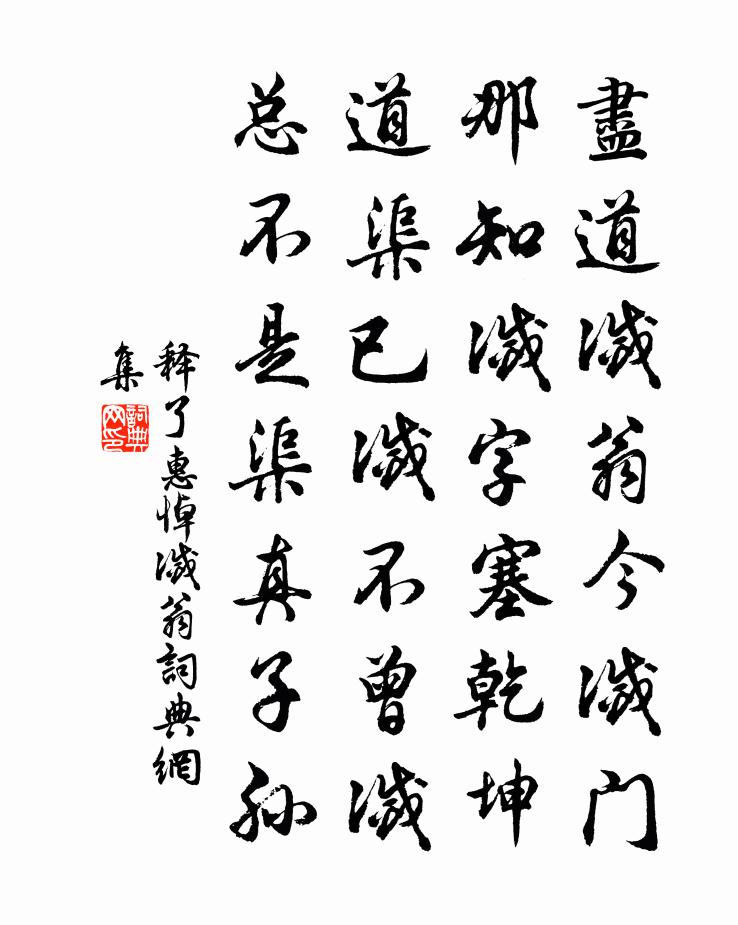 盡道滅翁今滅門
那知滅字塞乾坤
道渠已滅不曾滅
总不是渠真子孙
释了惠悼滅翁詞典網
集
詞典
网印